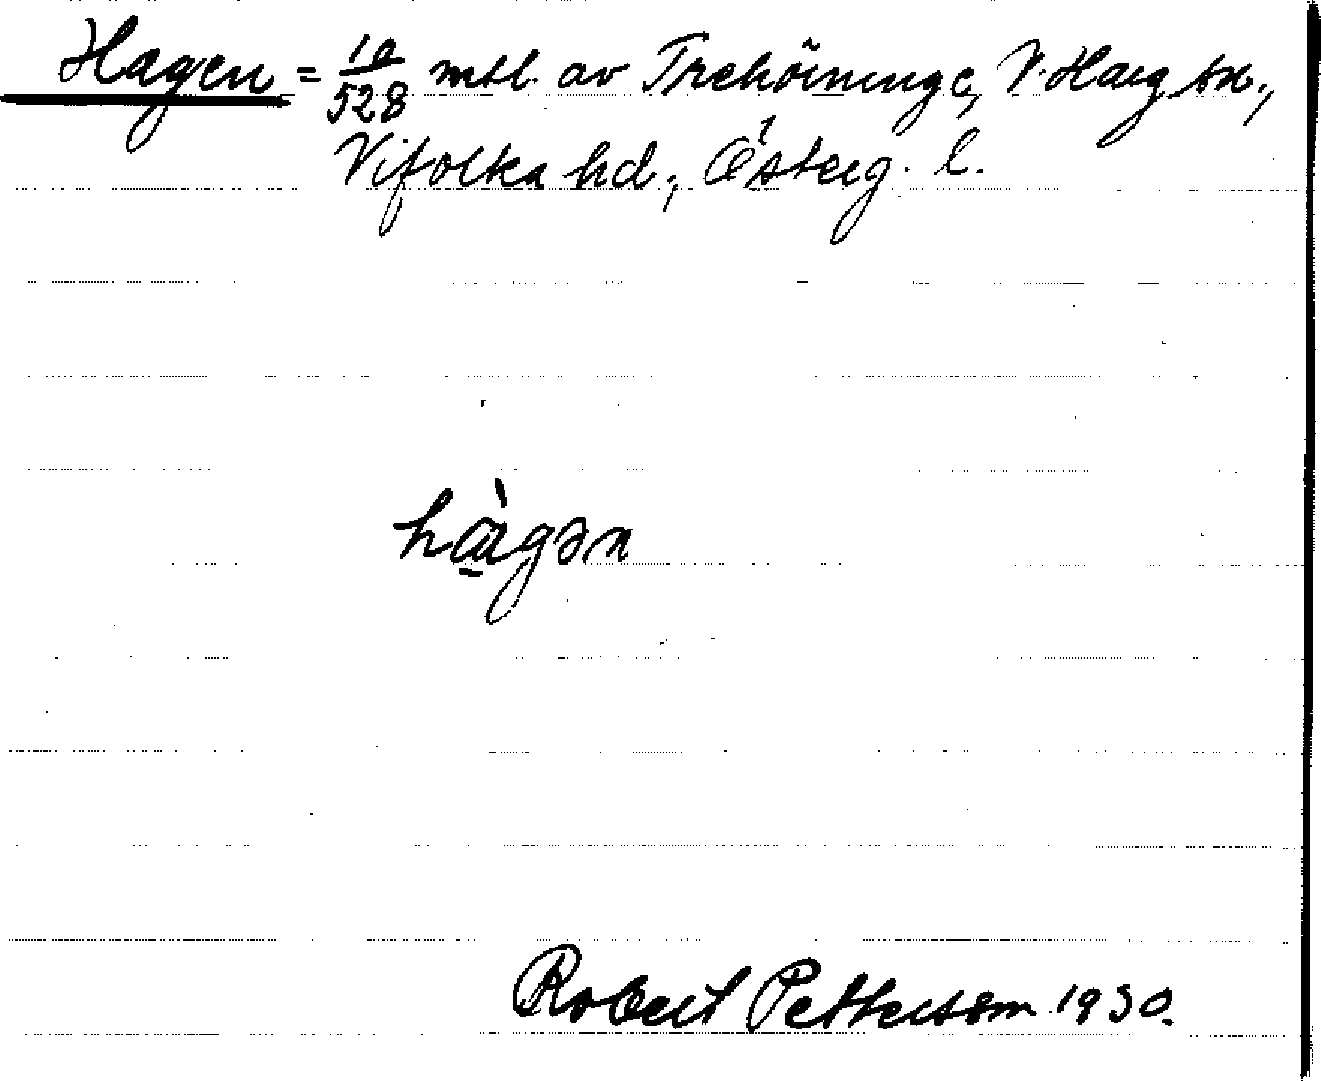 Hagen = 10/528 mtl. av Trehörninge, V. Harg sn.,
Vifolka hd., Österg. l.
hàgən
Robert Pettersson 1930.